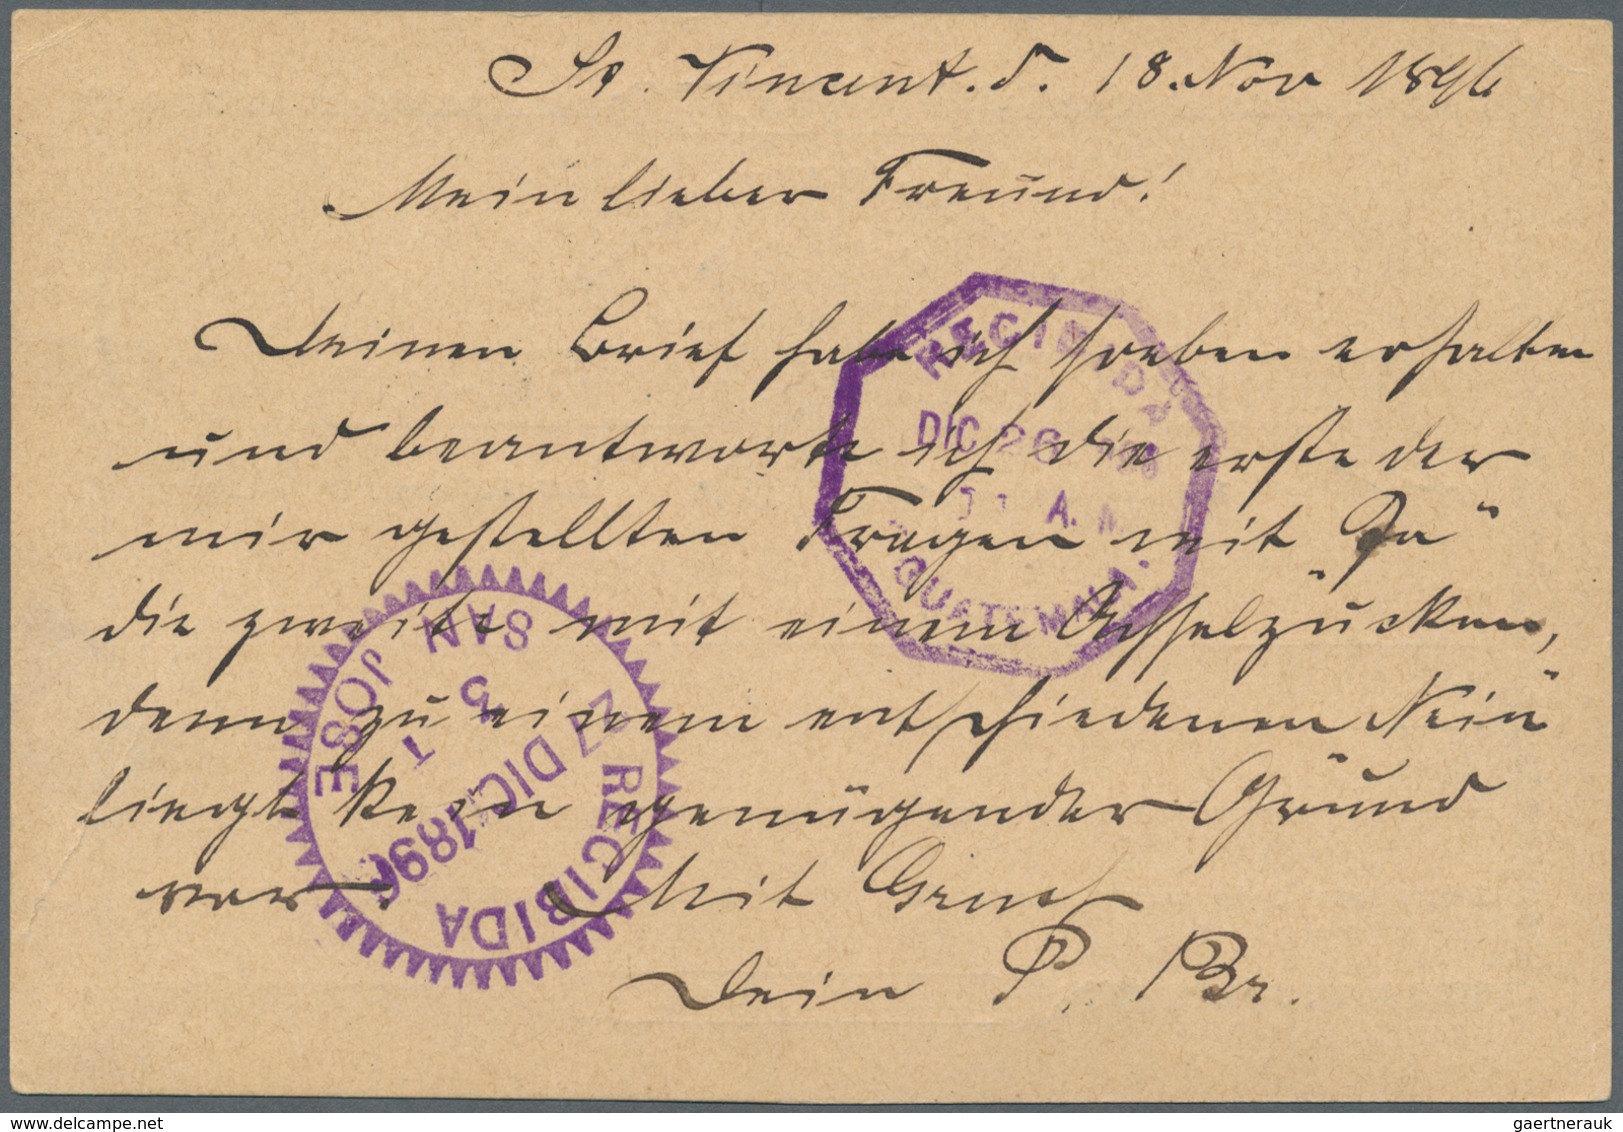 St. Vincent. d. 18. Nov 1896
Mein lieber Freund!
Deinen Brief habe ich soeben erhalten
und beantworte ich die erste der
mir gestellten Fragen mit "Ja"
die zweite mit einem Achselzücken,
denn zu einem entschiedenen "Nein"
liegt kein genügender Grund
vor. Mit Gruß
Dein P. Br.
RECIBIDA
DIC 26
11 A.M.
GUATEMALA.
SAN JOSE
5
1
27 DIC. 1896
RECIBIDA
gaertnerauk / delcampe.net